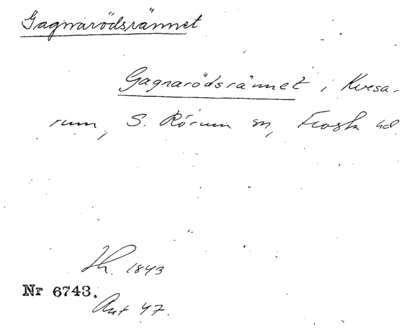 Gagnarödsrännet
Gagnarödsrännet i Kvesa-
rum, S. Rörum sn, Frosta hd
Lh. 1843
Nr 6743.
Ant 47.